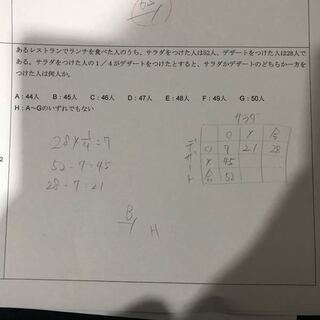 あるレストランでランチを食べた人のうち、サラダをつけた人は52人、デザートをつけた人は28人で
ある。サラダをつけた人の1／4がデザートをつけたとすると、サラダかデザートのどちらか一方を
つけた人は何人か。
A：44人 B：45人 C：46人 D：47人 E：48人 F：49人 G：50人
H：A～Gのいずれでもない
サラダ
○ × 合
デザート ○ 7 21 28
× 45
合 52
28×1/4=7
52-7=45
28-7=21
B
H
2